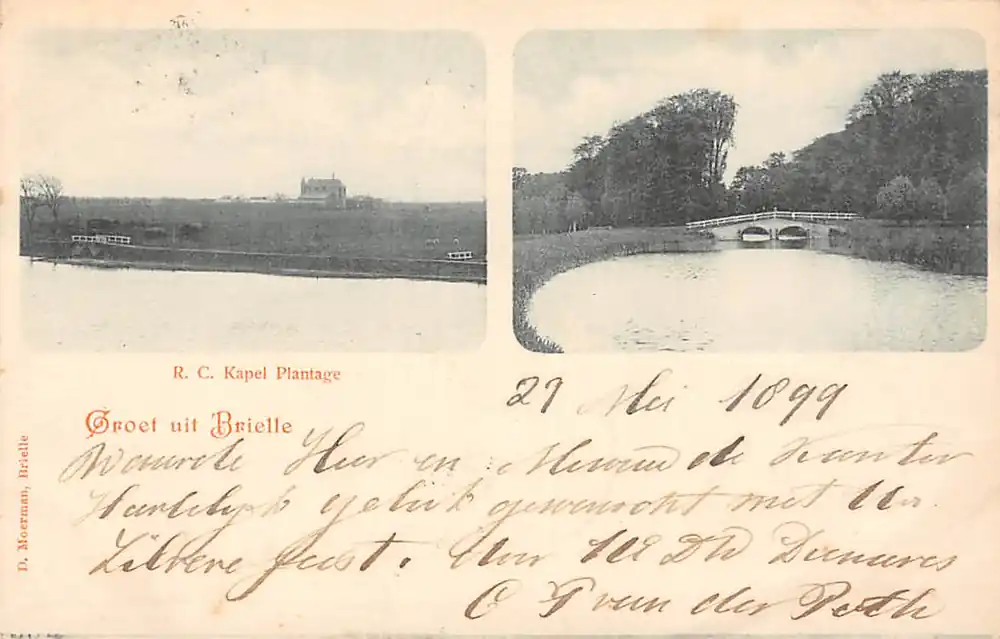 R. C. Kapel Plantage
Groet uit Brielle
D. Moerman, Brielle
29 Mei 1899
Waarde Heer en Mevrouw de Kanter
Hartelijk geluk gewenscht met Uw
Zilvere feest. Uw
C P van der Poth